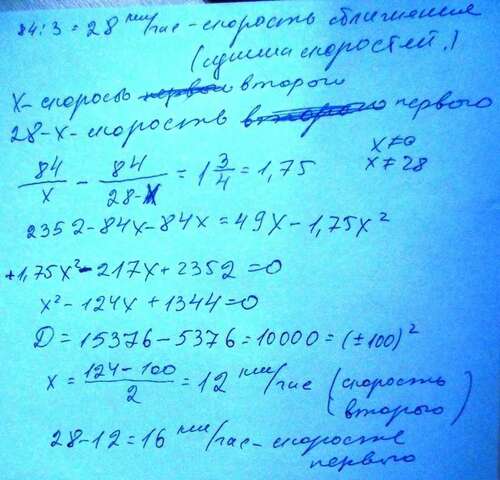 84:3=28 км/час - скорость сближения
(сумма скоростей.)
x - скорость первого второго
28-x - скорость второго первого
84/x - 84/(28-x) = 1 3/4 = 1,75
x≠0
x≠28
2352-84x-84x=49x-1,75x²
+1,75x²-217x+2352=0
x²-124x+1344=0
D=15376-5376=10000=(±100)²
x = (124-100)/2 = 12 км/час (скорость второго)
28-12=16 км/час - скорость
первого